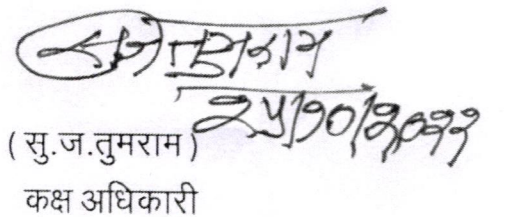 तुमराम
२५/१०/२०२२
( सु.ज.तुमराम )
कक्ष अधिकारी